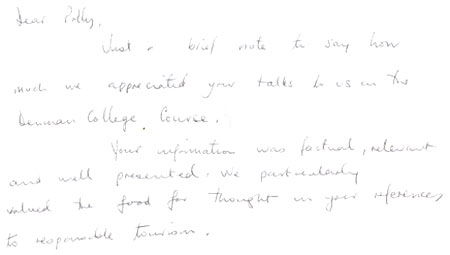 Dear Polly,
Just a brief note to say how
much we appreciated your talks to us on the
Denman College Course.
Your information was factual, relevant
and well presented. We particularly
valued the food for thought in your references
to responsible tourism.